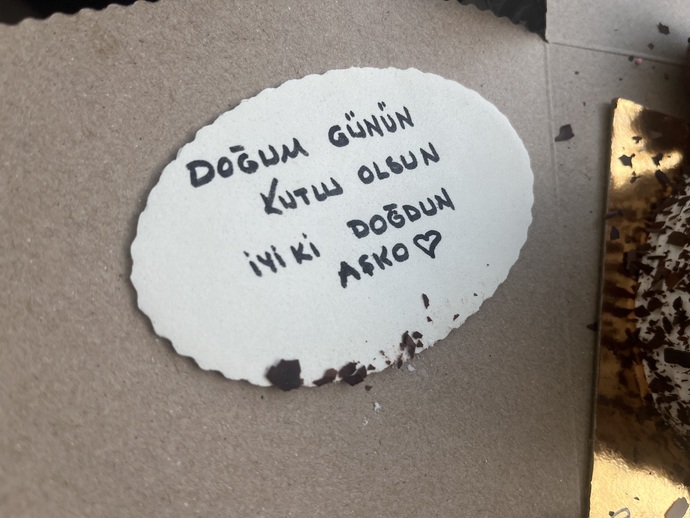 DOĞUM GÜNÜN
KUTLU OLSUN
İYİ Kİ DOĞDUN
AŞKO♡